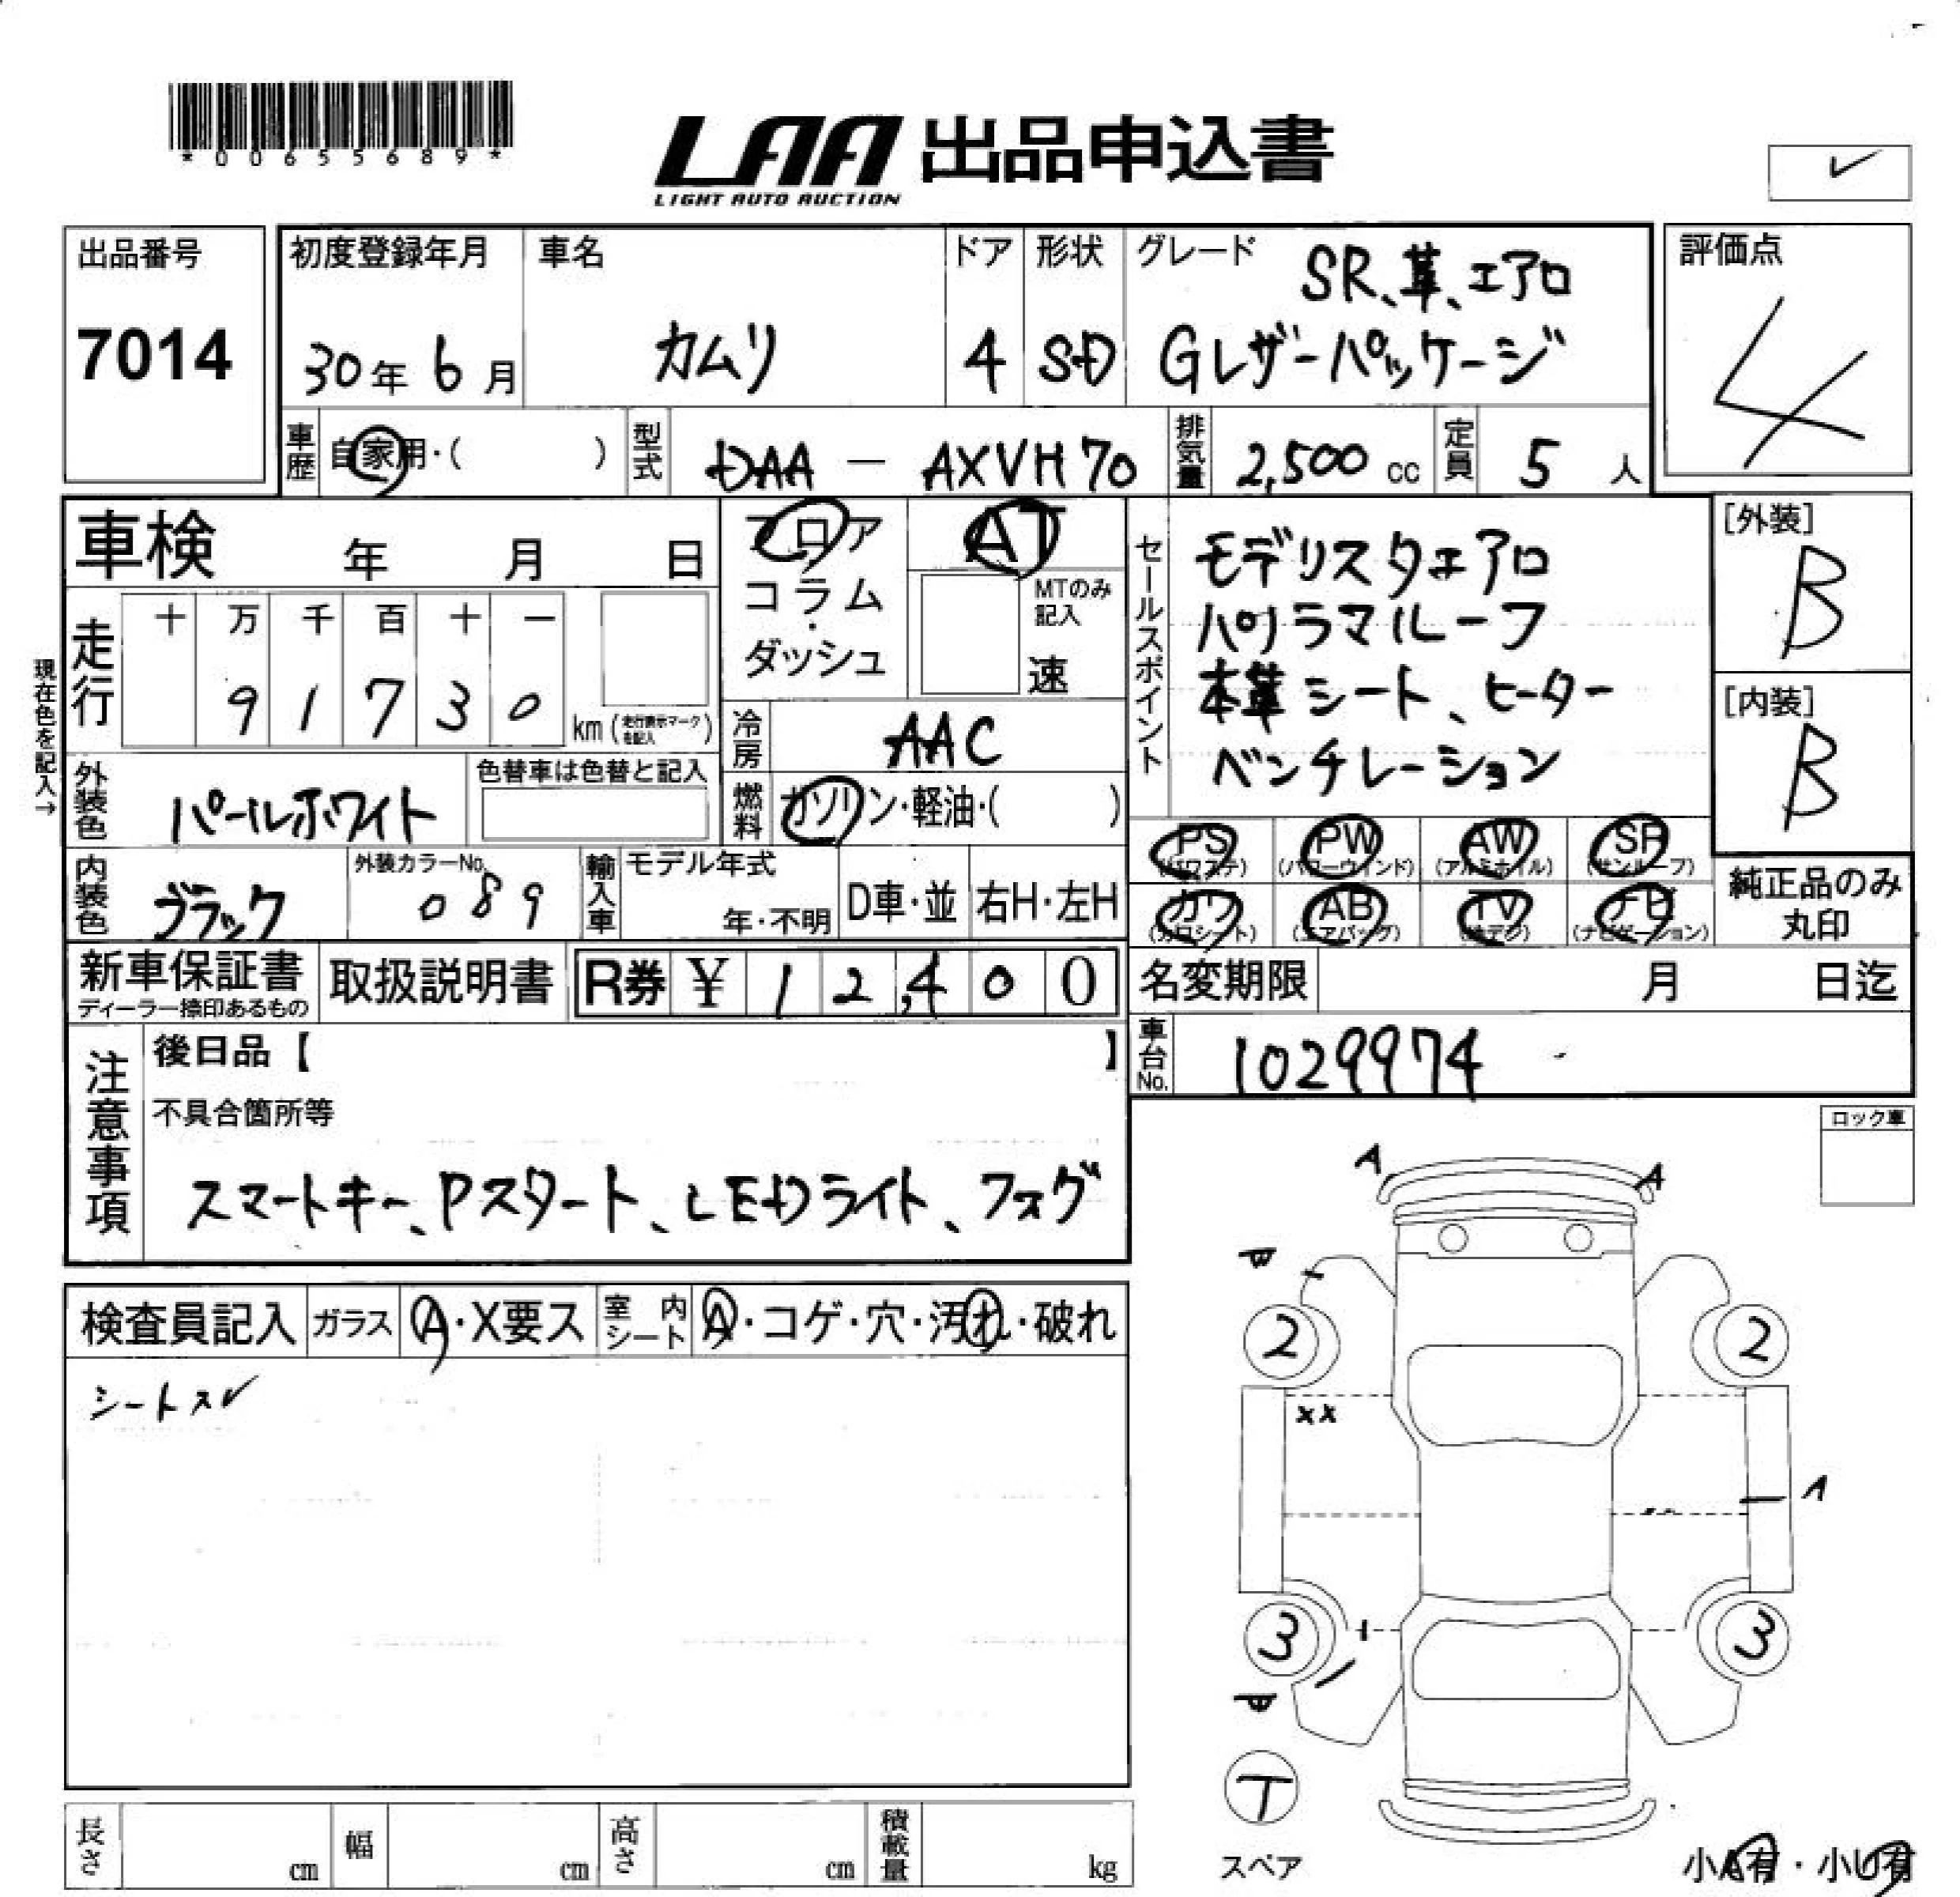 *00655689*
LAA 出品申込書
LIGHT AUTO AUCTION
✓
出品番号
7014
初度登録年月
30年 6月
車名
カムリ
ドア
4
形状
SD
グレード
SR、革、エアロ
Gレザーパッケージ
評価点
4
車歴 自家用・( )
型式 DAA - AXVH70
排気量 2,500 cc
定員 5 人
車検 年 月 日
フロア
コラム・
ダッシュ
AT
MTのみ
記入
速
セールスポイント
モデリスタエアロ
パノラマルーフ
本革シート、ヒーター
ベンチレーション
[外装]
B
[内装]
B
現在色を記入→
走行
十 万 千 百 十 一
9 1 7 3 0 km (走行表示マークを記入)
冷房 AAC
外装色 パールホワイト
色替車は色替と記入
燃料 ガソリン・軽油・( )
PS (パワステ)
PW (パワーウィンド)
AW (アルミホイル)
SR (サンルーフ)
カワ (カワシート)
AB (エアバッグ)
TV (地デジ)
ナビ (ナビゲーション)
純正品のみ
丸印
内装色 ブラック
外装カラーNo.
089
輸入車
モデル年式
年・不明
D車・並
右H・左H
新車保証書
ディーラー捺印あるもの
取扱説明書
R券 ¥ 1 2,4 0 0
名変期限 月 日迄
車台No. 1029974
注意事項
後日品【 】
不具合箇所等
スマートキー、Pスタート、LEDライト、フォグ
ロック車
検査員記入
ガラス A・X要ス
室内シート A・コゲ・穴・汚れ・破れ
シートスレ
A
A
2
2
XX
A
3
3
T
スペア
長さ cm
幅 cm
高さ cm
積載量 kg
小A有・小U有